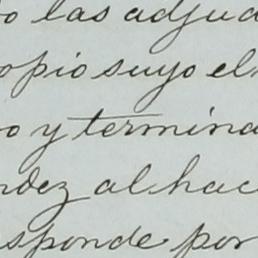 o las adjud
opio suyo el
o y termina
ndez al hac
sponde por